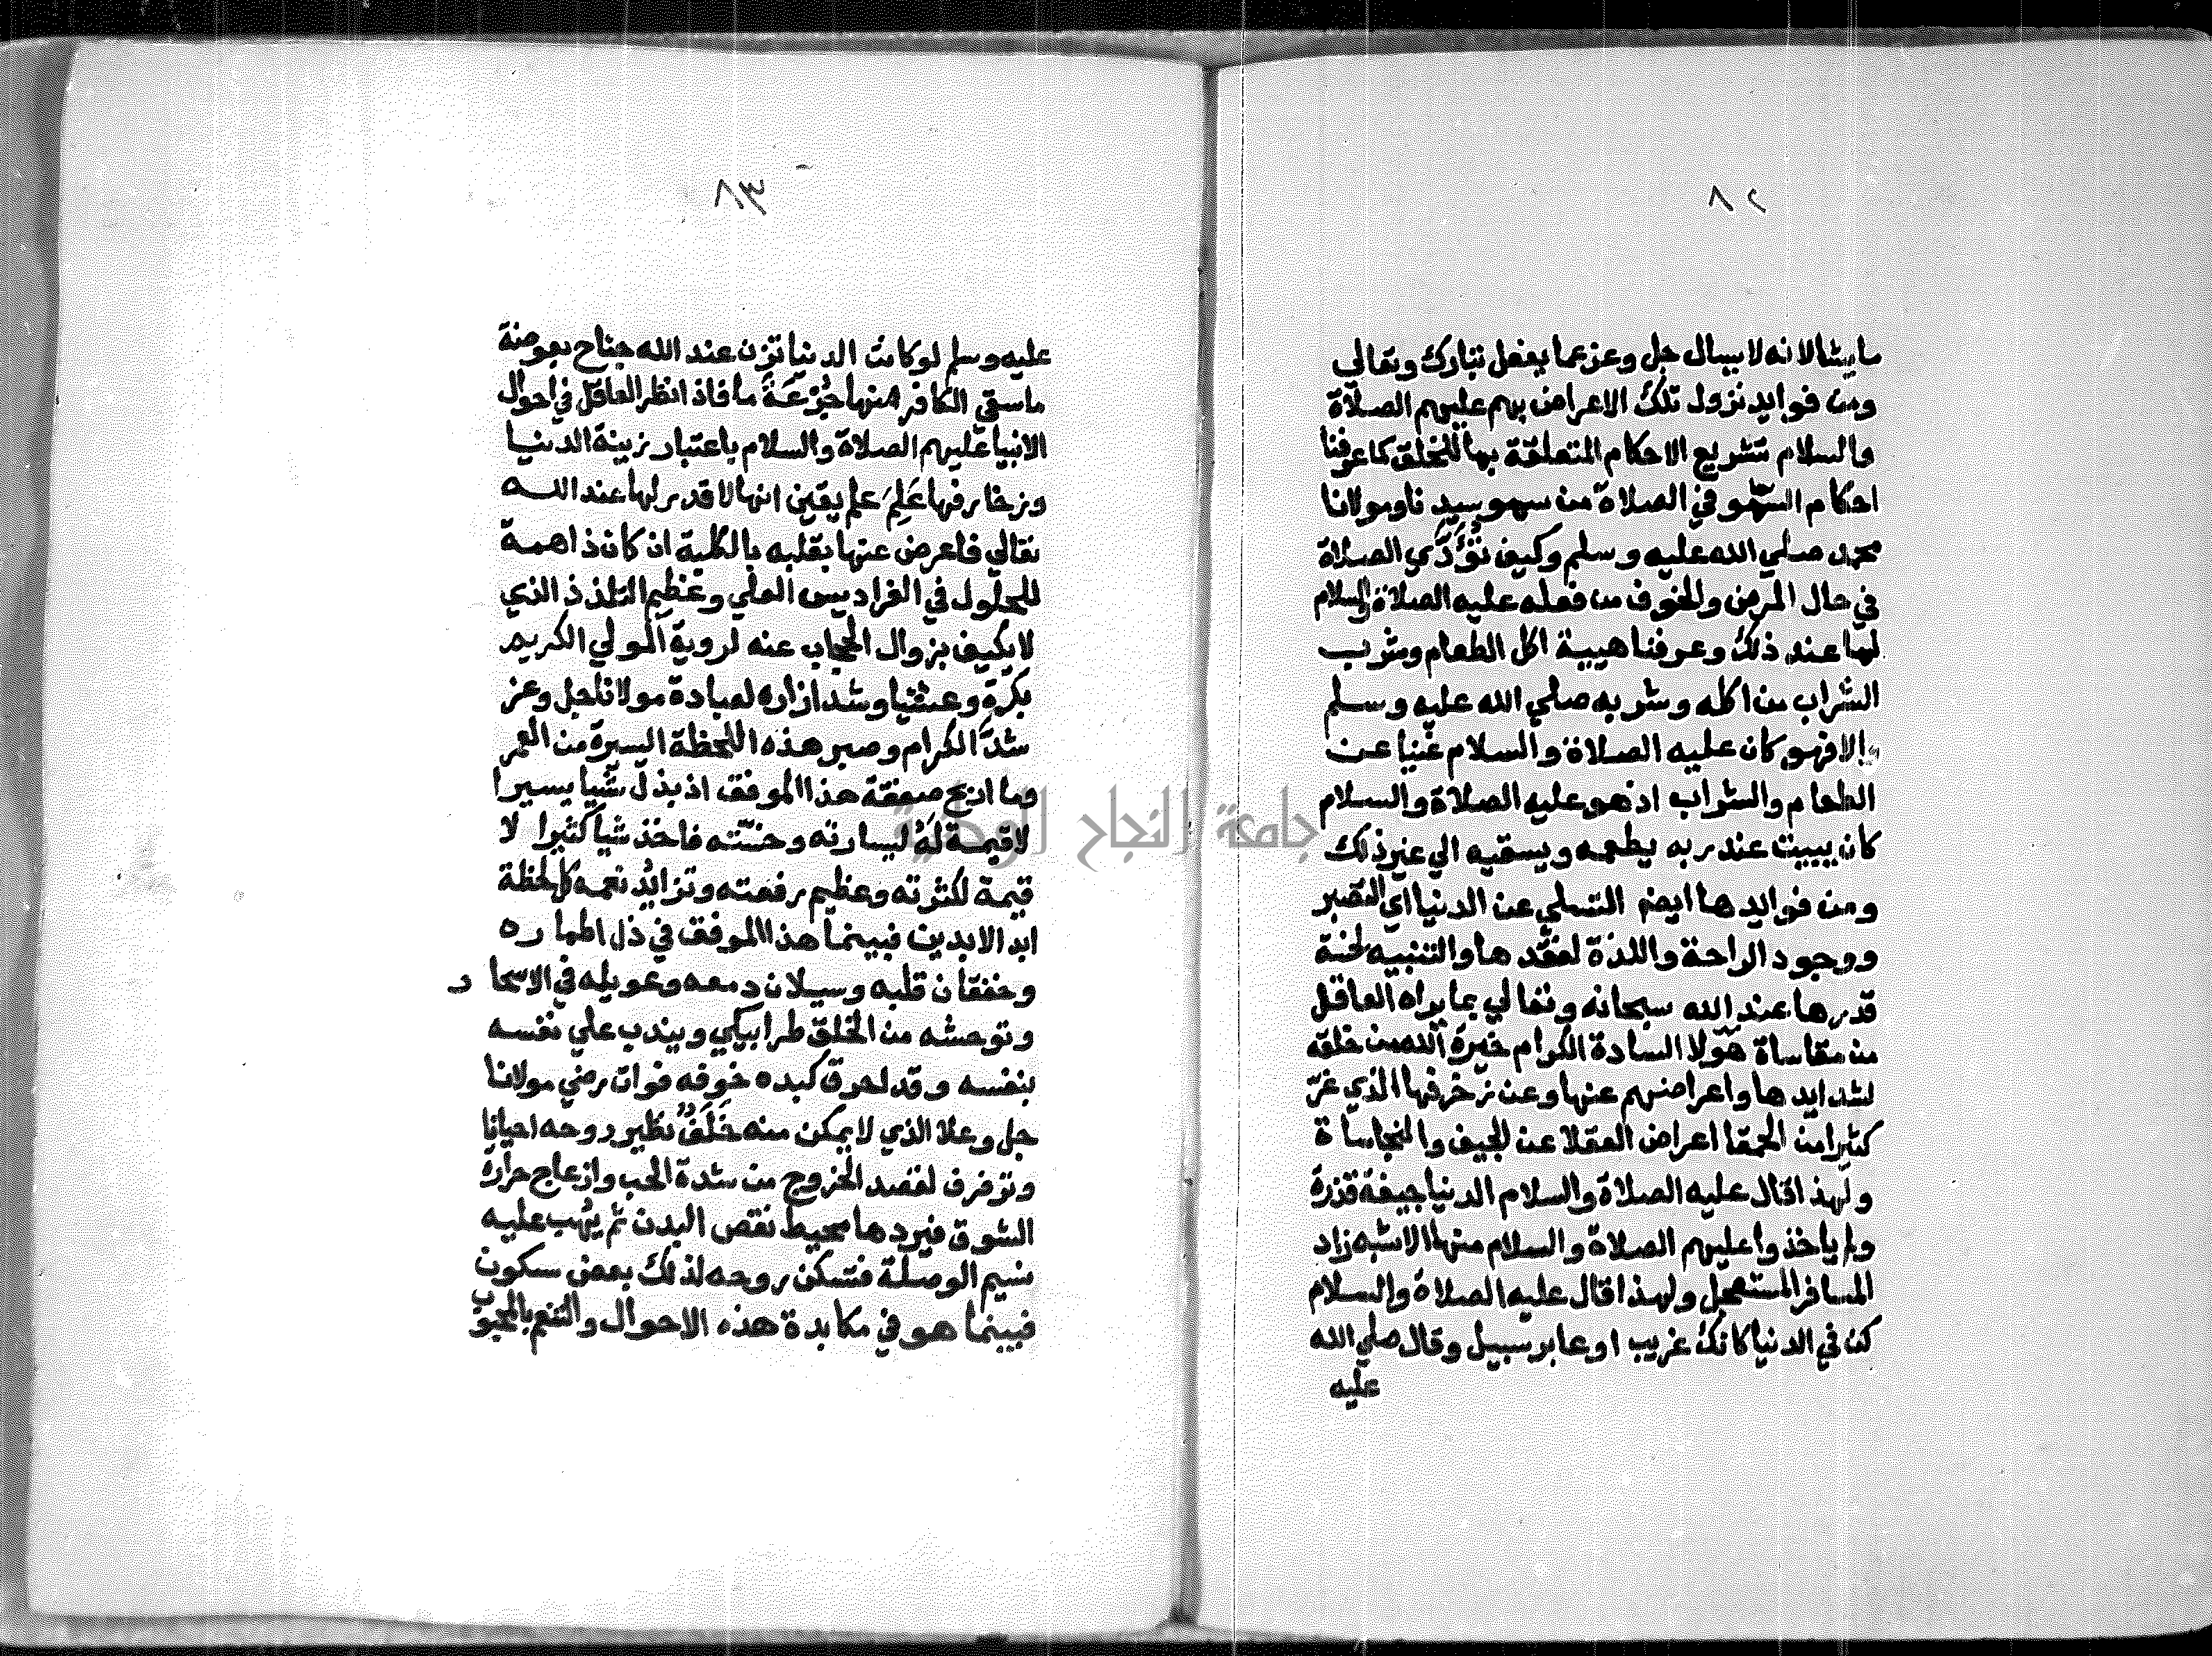 ٨٢
ما يشا لانه لا يسال جل وعز عما يفعل تبارك وتعالي
ومن فوايد نزول تلك الاعراض بهم عليهم الصلاة
والسلام تشريع الاحكام المتعلقة بها للخلق كما عرفنا
احكام السهو في الصلاة من سهو سيدنا ومولانا
محمد صلي الله عليه وسلم وكيف تُؤَدَّي الصلاة
في حال المرض والخوف من فعله عليه الصلاة والسلام
لها عند ذلك وعرفنا هيية اكل الطعام وشرب
الشراب من اكله وشربه صلي الله عليه وسلم
والا فهو كان عليه الصلاة والسلام غنيا عن
الطعام والشراب اذ هو عليه الصلاة والسلام
كان يبيت عند ربه يطعمه ويسقيه الي غير ذلك
ومن فوايدها ايض التسلي عن الدنيا اي التصبر
ووجود الراحة واللذة لفقدها والتنبيه لخسة
قدرها عند الله سبحانه وتعالي بما يراه العاقل
من مقاساة هؤلا السادة الكرام خيرة الله من خلقه
لشدايدها واعراضهم عنها وعن زخرفها الذي غرّ
كثيرا من الحمقا اعراض العقلا عن الجيف والنجاساة
ولهذا قال عليه الصلاة والسلام الدنيا جيفة قذرة
ولم ياخذوا عليهم الصلاة والسلام منها الا شبه زاد
المسافر المستعجل ولهذا قال عليه الصلاة والسلام
كن في الدنيا كانك غريب او عابر سبيل وقال صلي الله
عليه
٨٣
عليه وسلم لو كانت الدنيا تزن عند الله جناح بعوضة
ما سقي الكافر منها جُرْعَةَ ما فاذا نظر العاقل في احوال
الانبيا عليهم الصلاة والسلام باعتبار زينة الدنيا
وزخارفها عَلِمَ علم يقين انها لا قدر لها عند الله
تعالي فاعرض عنها بقلبه بالكلية ان كان ذا همة
للحلول في الفراديس العلي وعظيم التلذذ الذي
لا يكيف بزوال الحجاب عنه لروية المولي الكريم
بكرة وعشيا وشد ازاره لعبادة مولانا جل وعز
شدّ الكرام وصبر هذه اللحظة اليسيرة من العمر
وما اربح صفقة هذا الموفق اذ بذل شيا يسيرا
لا قيمة لَهُ ليسارته وخسّته فاخذ شيا كثيرا لا
قيمة لكثرته وعظيم رفعته وتزايُد نعمه كل لحظة
ابد الابدين فبينما هذا الموفق في ذل اطماره
وخفقان قلبه وسيلان دمعه وعويله في الاسحار
وتوحشه من الخلق طرا يبكي ويندب علي نفسه
بنفسه وقد احرق كبده خوفه فوات رضي مولانا
جل وعلا الذي لا يمكن منه خَلَفٌ تطير روحه احيانا
وترفرف لقصد الخروج من شدة الحب وازعاج حرارة
الشوق فيردها محيط نقص البدن ثم يهب عليه
نسيم الوصلة فتسكن روحه لذلك بعض سكون
فبينما هو في مكابدة هذه الاحوال والتنعم بالمحبوب
جامعة النجاح الوطنية